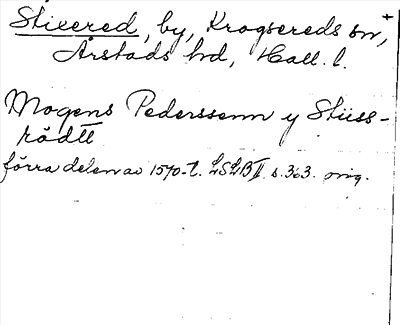 Stixered, by, Krogsereds sn, +
Årstads hd, Hall. l.
Mogens Pederssenn y Stiess-
rödtt
förra delen av 1570-t. LSLB II s. 363. orig.